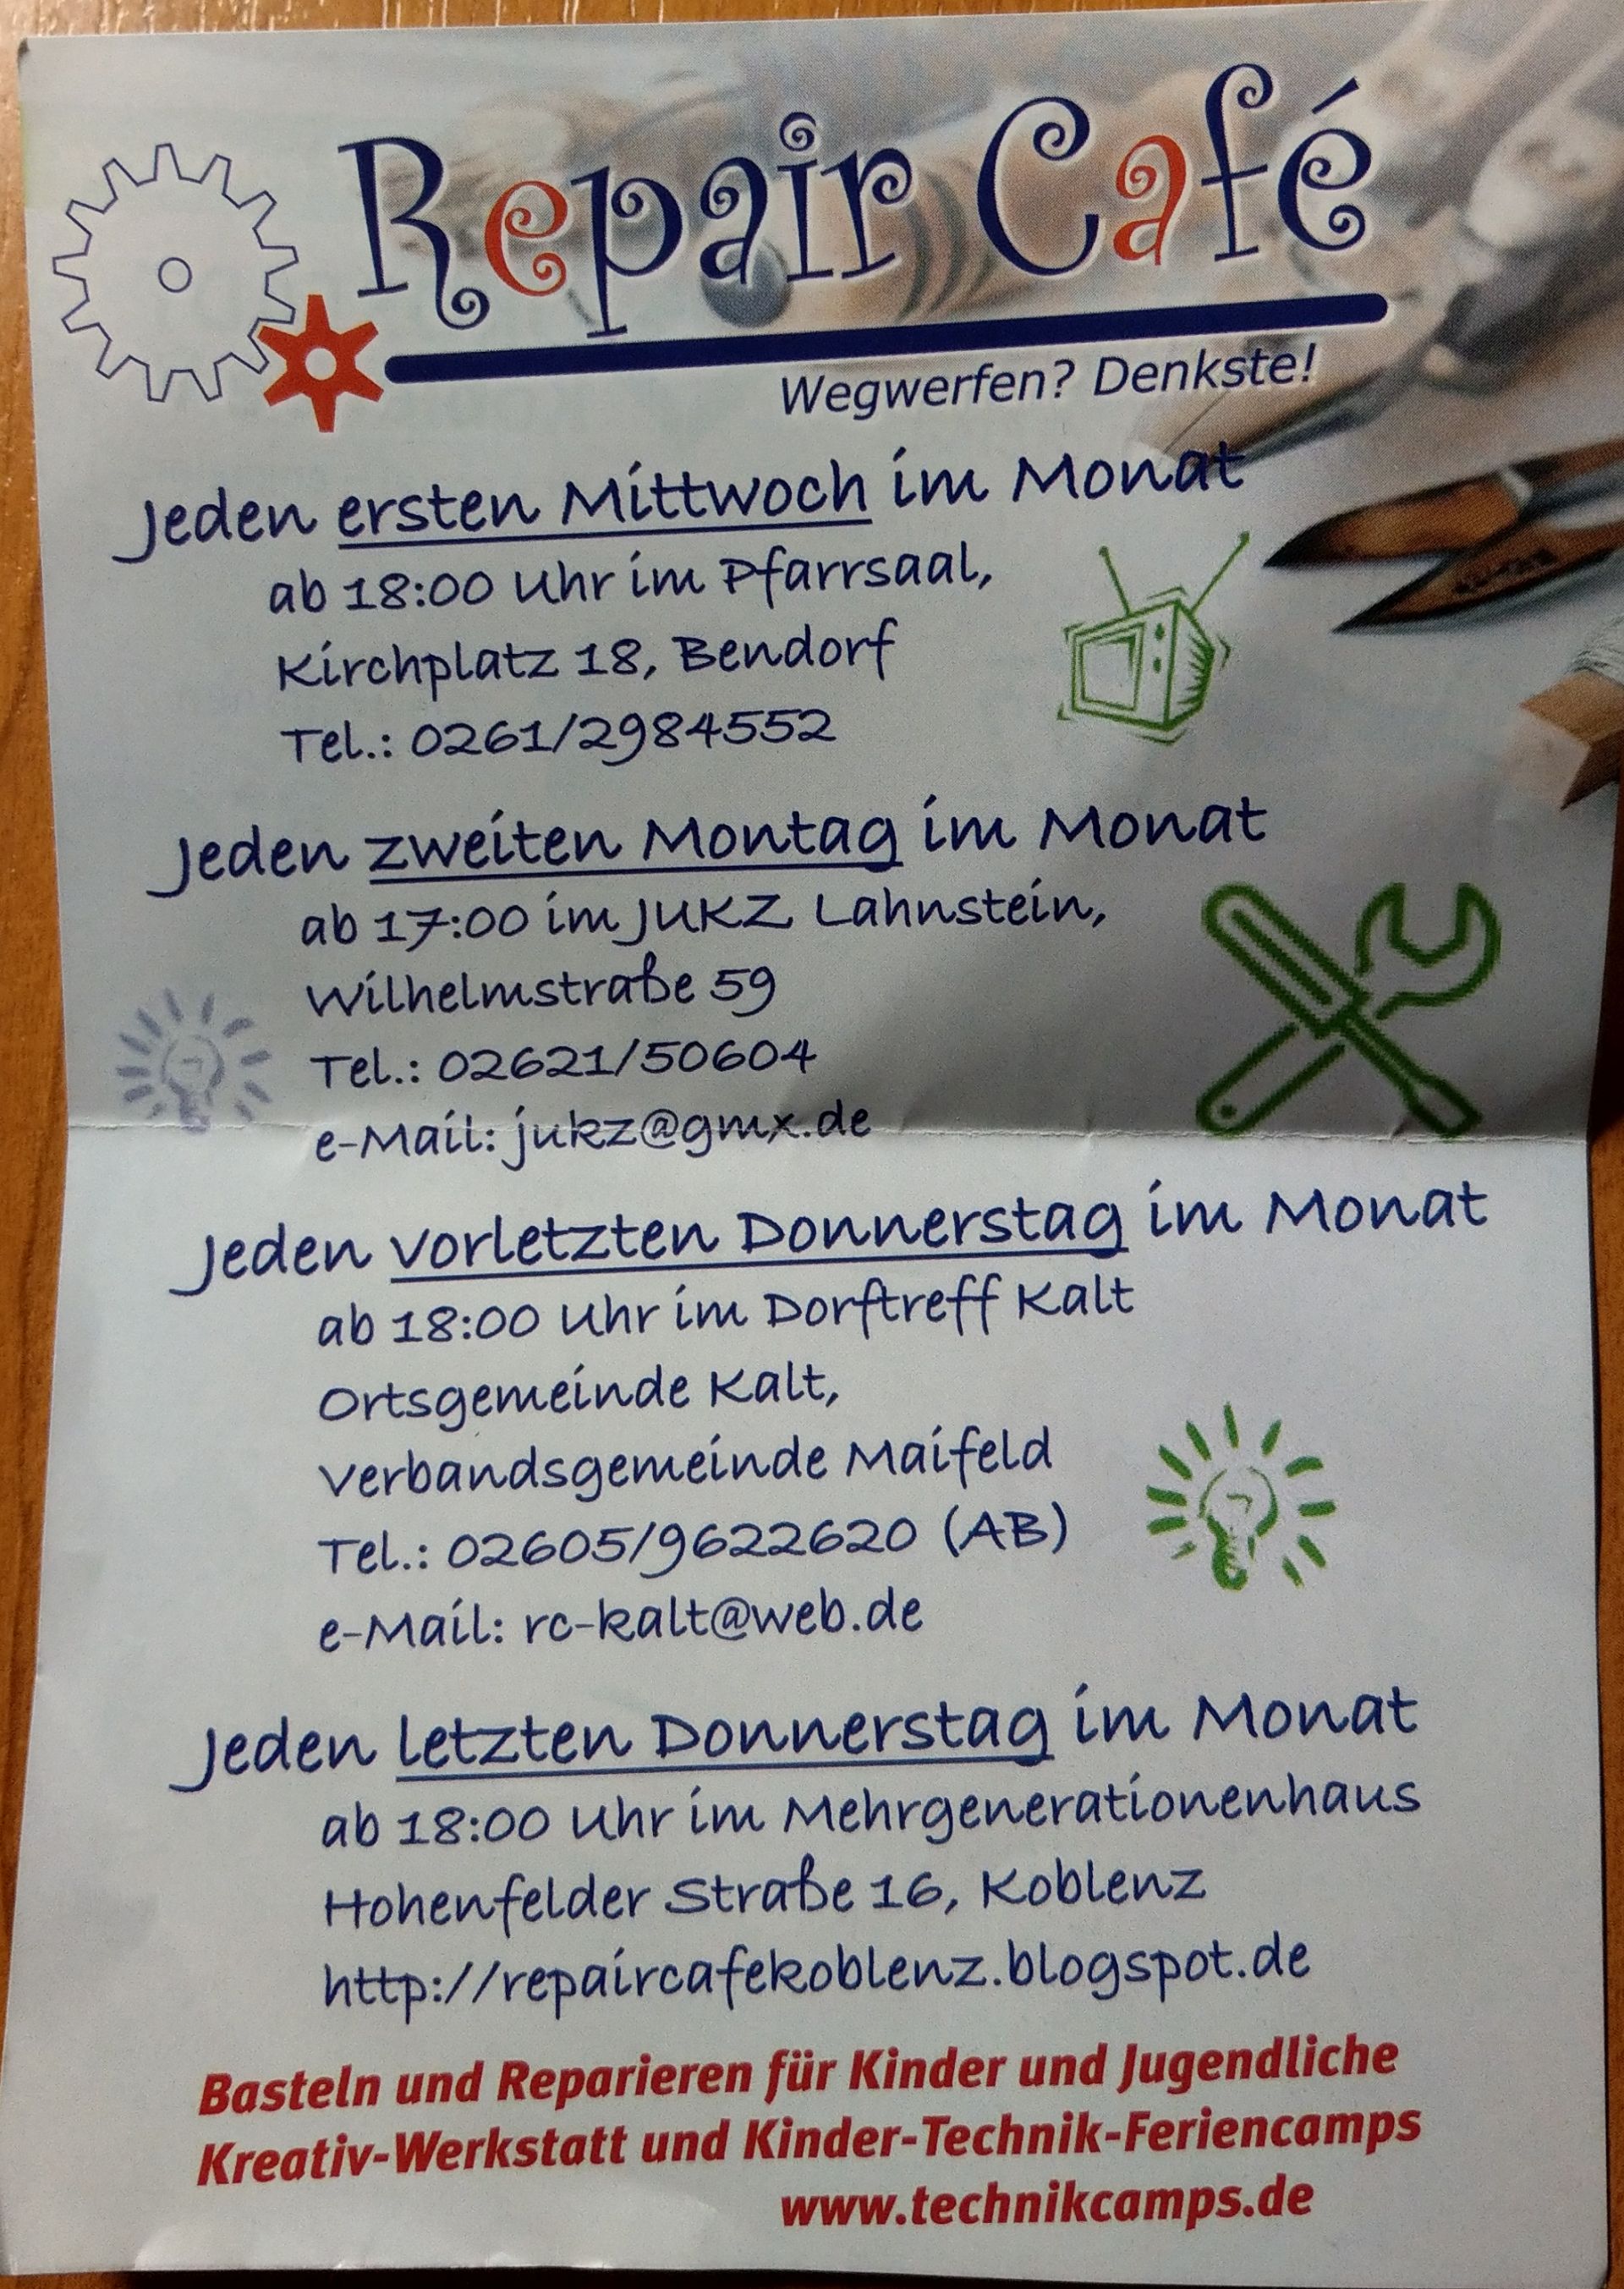 Repair Café
Wegwerfen? Denkste!
Jeden ersten Mittwoch im Monat
ab 18:00 Uhr im Pfarrsaal,
Kirchplatz 18, Bendorf
Tel.: 0261/2984552
Jeden zweiten Montag im Monat
ab 17:00 im JUKZ Lahnstein,
Wilhelmstraße 59
Tel.: 02621/50604
e-Mail: jukz@gmx.de
Jeden vorletzten Donnerstag im Monat
ab 18:00 Uhr im Dorftreff Kalt
Ortsgemeinde Kalt,
Verbandsgemeinde Maifeld
Tel.: 02605/9622620 (AB)
e-Mail: rc-kalt@web.de
Jeden letzten Donnerstag im Monat
ab 18:00 Uhr im Mehrgenerationenhaus
Hohenfelder Straße 16, Koblenz
http://repaircafekoblenz.blogspot.de
Basteln und Reparieren für Kinder und Jugendliche
Kreativ-Werkstatt und Kinder-Technik-Feriencamps
www.technikcamps.de